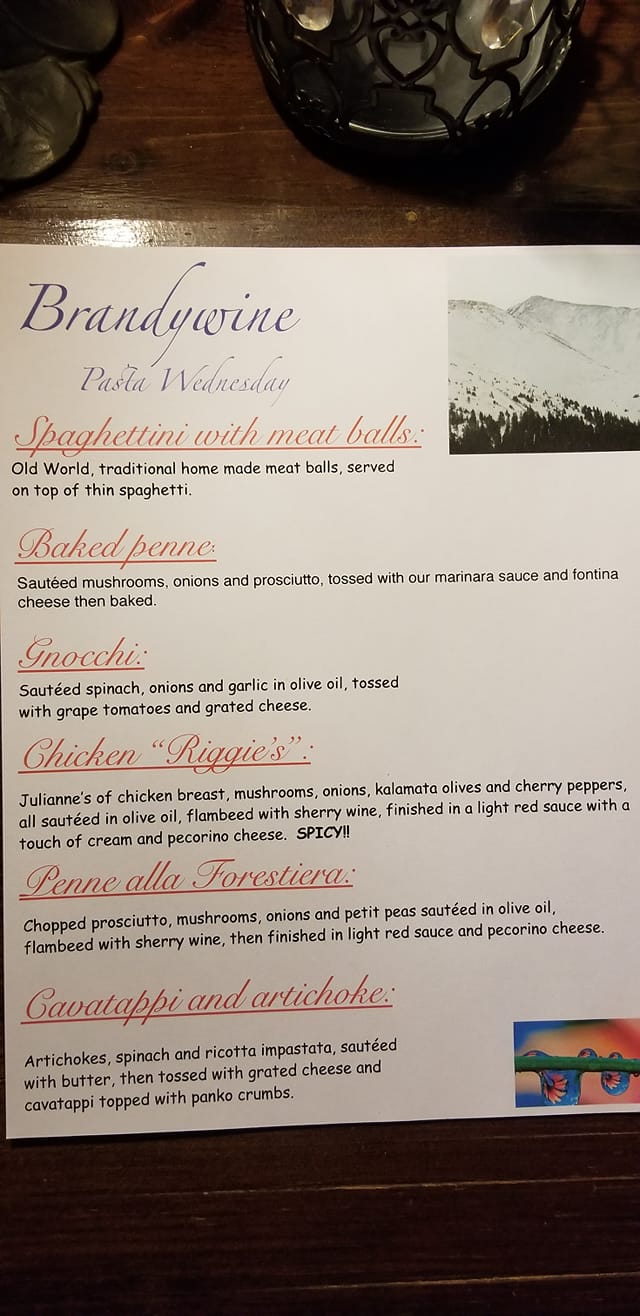 Brandywine
Pasta Wednesday
Spaghettini with meat balls:
Old World, traditional home made meat balls, served
on top of thin spaghetti.
Baked penne:
Sautéed mushrooms, onions and prosciutto, tossed with our marinara sauce and fontina
cheese then baked.
Gnocchi:
Sautéed spinach, onions and garlic in olive oil, tossed
with grape tomatoes and grated cheese.
Chicken “Riggie’s”:
Julianne’s of chicken breast, mushrooms, onions, kalamata olives and cherry peppers,
all sautéed in olive oil, flambeed with sherry wine, finished in a light red sauce with a
touch of cream and pecorino cheese. SPICY!!
Penne alla Forestiera:
Chopped prosciutto, mushrooms, onions and petit peas sautéed in olive oil,
flambeed with sherry wine, then finished in light red sauce and pecorino cheese.
Cavatappi and artichoke:
Artichokes, spinach and ricotta impastata, sautéed
with butter, then tossed with grated cheese and
cavatappi topped with panko crumbs.